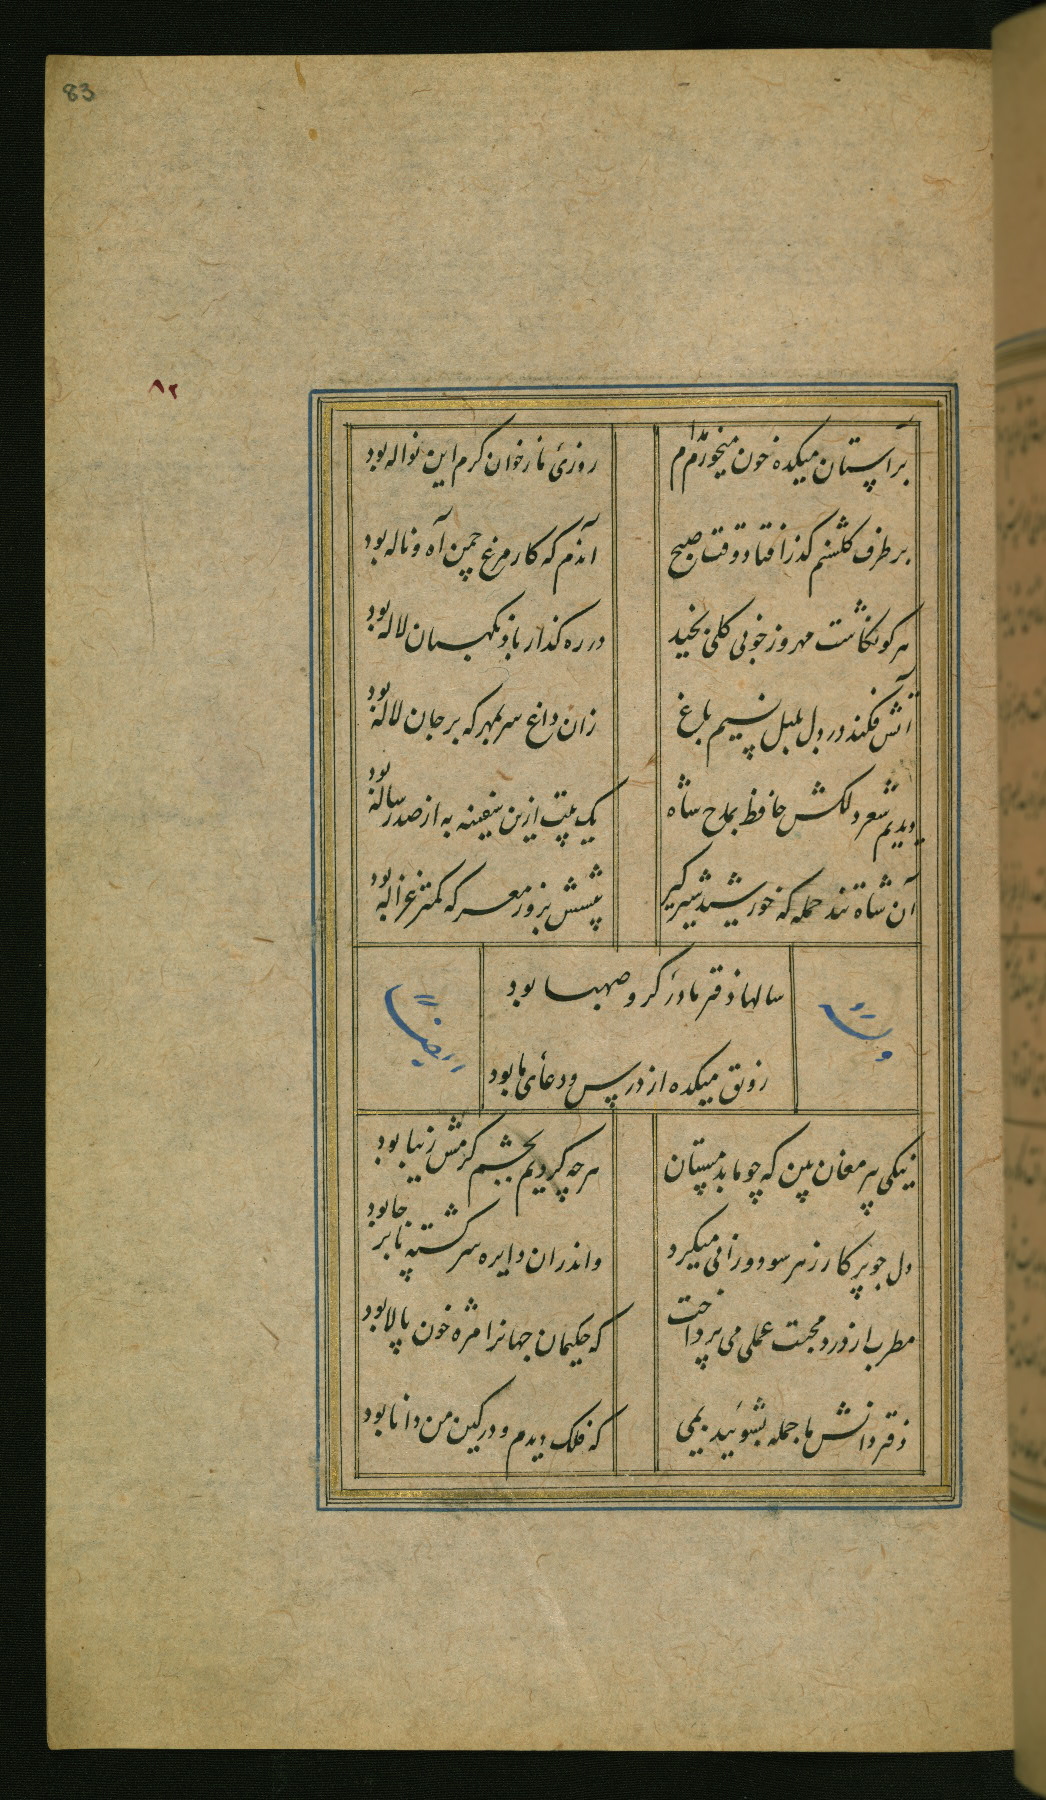 83
۸۲
بر آستان میکده خون میخورم مدام
روزیٔ ما ز خوان کرم این نواله بود
بر طرف گلشنم گذر افتاد وقت صبح
آندم که کار مرغ چمن آه و ناله بود
هر کو نکاشت مهر و ز خوبی گلی نچید
در رهگذار باد نگهبان لاله بود
آتش فکند در دل بلبل نسیم باغ
زان داغ سر بمهر که بر جان لاله بود
دیدیم شعر دلکش حافظ بمدح شاه
یک بیت ازین سفینه به از صد رساله بود
آن شاه تند حمله که خورشید شیرگیر
پیشش بروز معرکه کمتر غزاله بود
وله
ایضا
سالها دفتر ما در گرو صهبا بود
رونق میکده از درس و دعای ما بود
نیکی پیر مغان بین که چو ما بدمستان
هرچه کردیم بچشم کرمش زیبا بود
دل چو پرکار ز هر سو دورانی میکرد
واندران دایره سرگشته پا بر جا بود
مطرب از درد محبت عملی می پرداخت
که حکیمان جهانرا مژه خون پالا بود
دفتر دانش ما جمله بشوئید بمی
که فلک دیدم و در کین من دانا بود